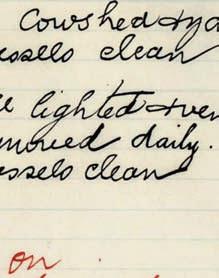 Cowshed & ya
essels clean
lighted & ven
moved daily.
essels clean
on